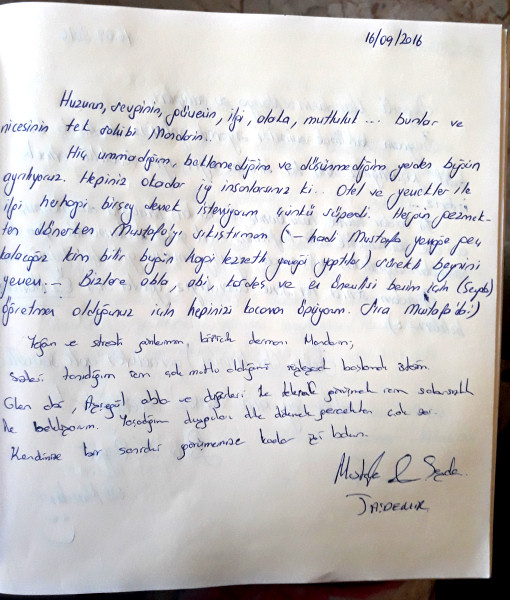 16/09/2016
Huzurun, sevginin, güvenin, ilgi, alaka, mutluluk ... bunlar ve
nicesinin tek sahibi Mandarin..
Hiç ummadığım, beklemediğim ve düşünmediğim yerden bugün
ayrılıyoruz. Hepiniz okadar iyi insanlarsınız ki... Otel ve yemekler ile
ilgi herhangi birşey demek istemiyorum çünkü süperdi. Hergün gezmek-
ten dönerken Mustafa'yı sıkıştırmam (- hadi Mustafa yemeğe geç
kalacağız kim bilir bugün hangi lezzetli yemeği yaptılar) sürekli beynini
yemem :- Bizlere abla, abi, kardeş ve en önemlisi benim için (Seyda)
öğretmen olduğunuz için hepinizi kocaman öpüyorum. (Sıra Mustafa'da :)
Yoğun ve stresli günlerimin, biricik dermanı Mandarin;
Sizleri tanıdığım için çok mutlu olduğumu söyleyerek başlamak istedim.
abi, Ayşegül abla ve diğerleri ile tekrar görüşmek için sabırsızlık
ile bekliyorum. Yaşadığım duyguları dile dökmek gerçekten çok zor.
Kendinize bir sonraki görüşmemize kadar iyi bakın.
Mustafa & Seyda
TAŞDEMİR